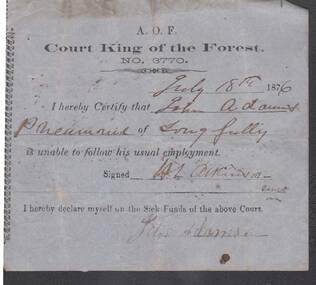 A. O. F.
Court King of the Forest.
NO. 3770.
July 18th 1876
I hereby Certify that John Adams
of Long gully
is unable to follow his usual employment.
Signed H L Atkinson
I hereby declare myself on the Sick Funds of the above Court.
John Adams